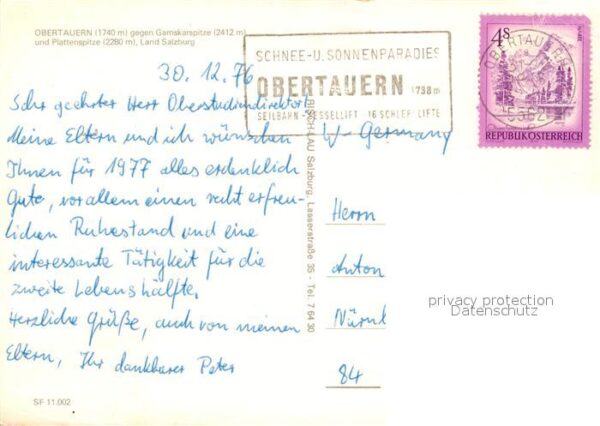 OBERTAUERN (1740 m) gegen Gamskarspitze (2412 m)
und Plattenspitze (2280 m), Land Salzburg
30.12.76
Sehr geehrter Herr Oberstudiendirektor!
Meine Eltern und ich wünschen
Ihnen für 1977 alles erdenklich
Gute, vor allem einen recht erfreu-
lichen Ruhestand und eine
interessante Tätigkeit für die
zweite Lebenshälfte.
Herzliche Grüße, auch von meinen
Eltern, Ihr dankbarer Peter
SF 11.002
SCHNEE-U. SONNENPARADIES
OBERTAUERN 1738 m
SEILBAHN - SESSELLIFT 16 SCHLEPPLIFTE
OBERTAUERN
4 S
REPUBLIK ÖSTERREICH
Salzburg, Lasserstraße 35 - Tel. 7 64 30
W-Germany
Herrn
Anton
Nürnb
84
privacy protection
Datenschutz